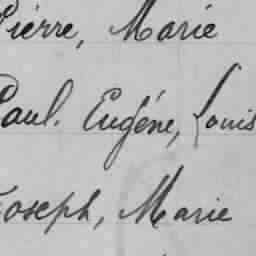 Pierre, Marie
Paul. Eugéne, Louis
Joseph, Marie